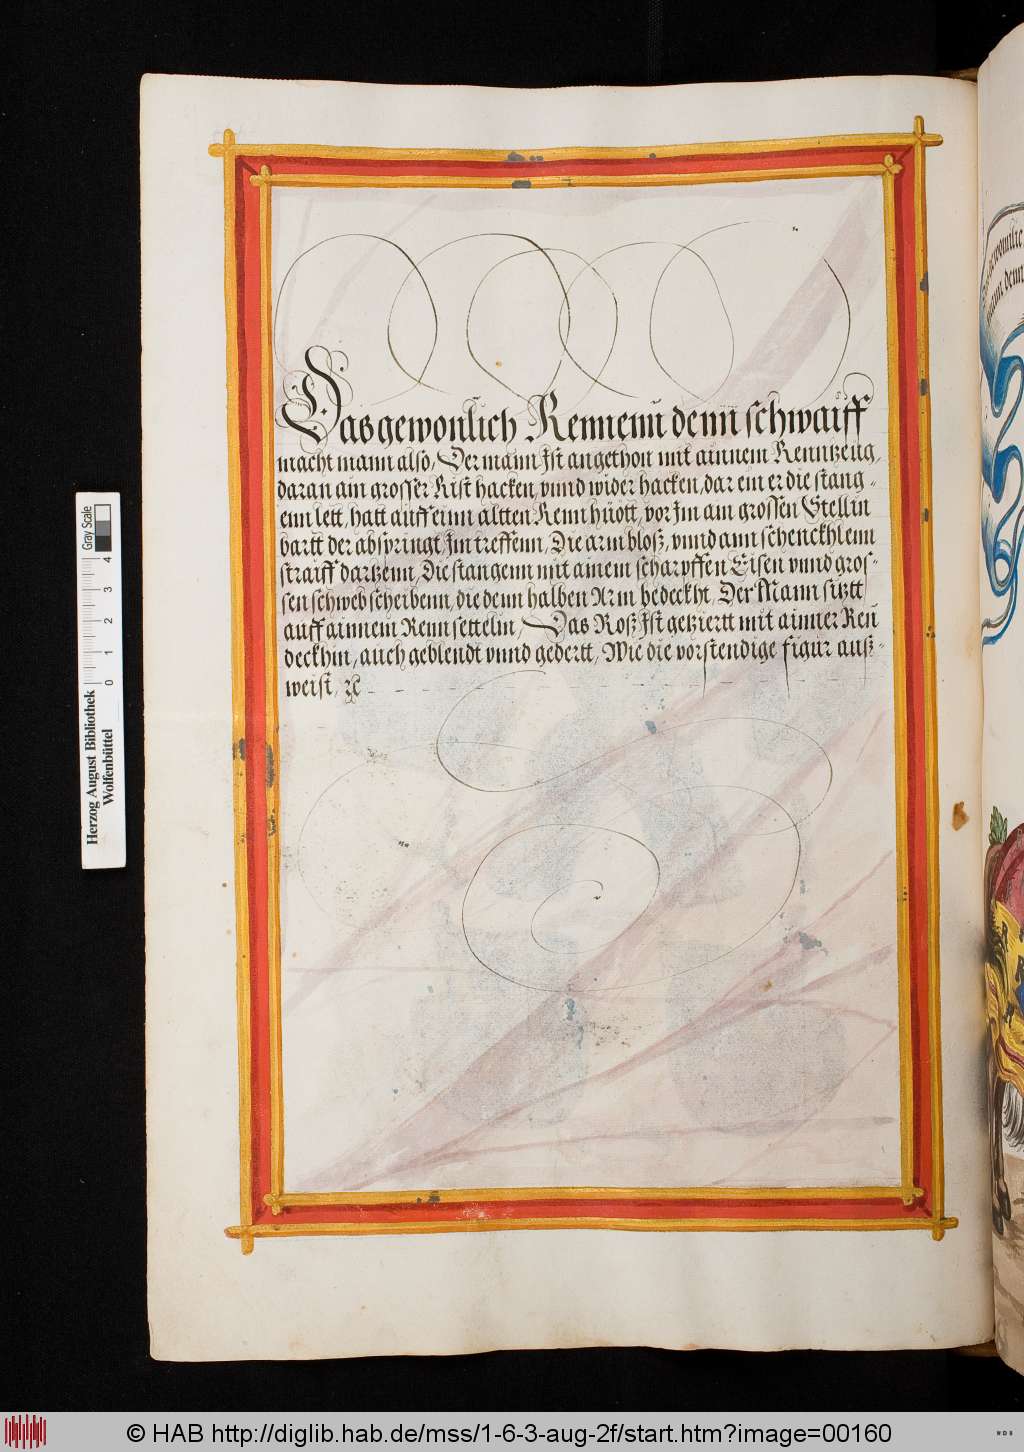 Das gewonlich Rennenn denn schwaiff
macht mann also, Der mann Jst angethon mit ainnem Rennzeug,
daran ain grosser Rist hacken, vnnd wider hacken, dar ein er die stang-
enn lett, hatt auff einn altten Renn hüött, vor Jm ain grossen Stellin
bartt der abspringt Jm treffenn, Die arm bloß, vnnd ann schenckhlenn
straiff dartzenn, Die stangenn mit ainem scharpffen Eisen vnnd gros-
sen schweb scheibenn, die denn halben Arm bedeckht, Der Mann sitztt
auff ainnem Renn settelin, Das Roß Jst getziertt mit ainner Ren
deckhin, auch geblendt vnnd gedertt, Wie die vorstendige figur auß-
weist, ꝛc
Herzog August Bibliothek
Wolfenbüttel
0 1 2 3 4
Gray Scale
© HAB http://diglib.hab.de/mss/1-6-3-aug-2f/start.htm?image=00160